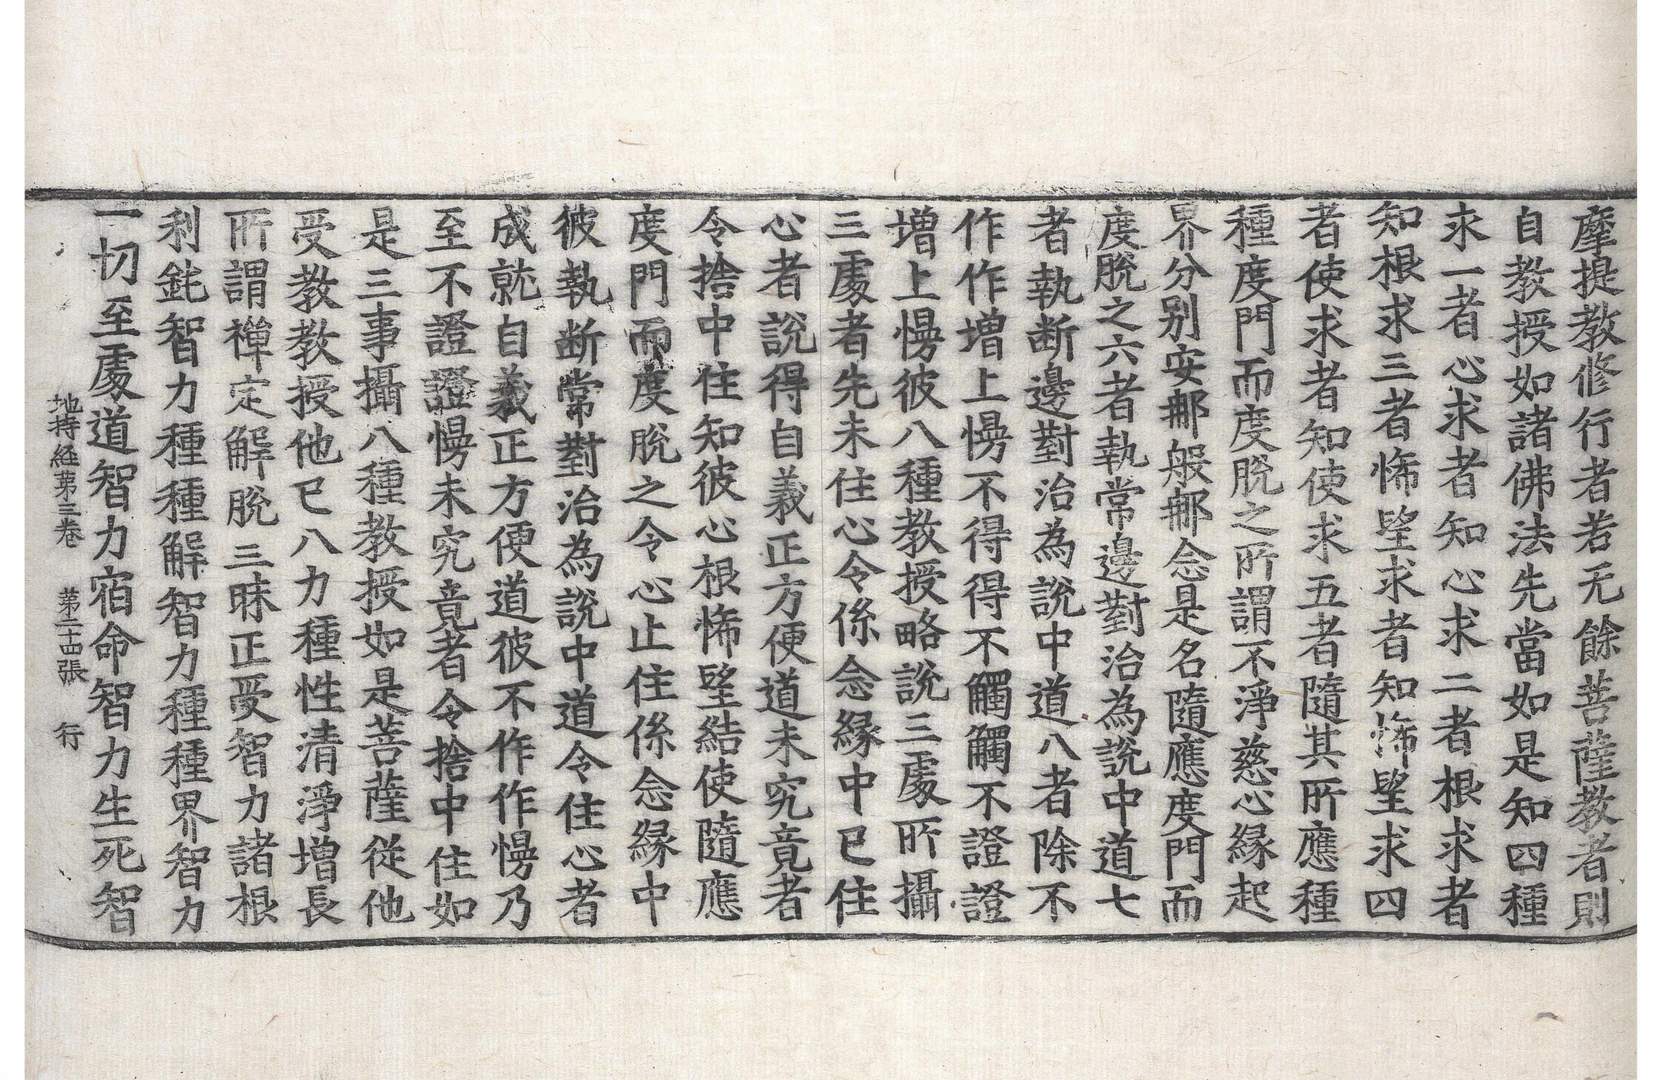 塺提教修行者若无餘菩薩教者則
自教授如諸佛法先當如是知四種
求一者心求者知心求二者根求者
知根求三者悕望求者知悕望求四
者使求者知使求五者隨其所應種
種度門而度脫之所謂不淨慈心緣起
界分別安那般那念是名隨應度門而
度脫之六者執常邊對治為說中道七
者執斷邊對治為說中道八者除不
作作增上慢不得得不觸觸不證證
增上慢彼八種教授略說三處所攝
三處者先未住心令係念緣中已住
心者說得自義正方便道未究竟者
令捨中住知彼心根悕望結使隨應
度門而度脫之令心止住係念緣中
彼執斷常對治為說中道令住心者
成就自義正方便道彼不作作慢乃
至不證證慢未究竟者令捨中住如
是三事攝八種教授如是菩薩從他
受教教授他已八力種性清淨增長
所謂禪定解脫三昧正受智力諸根
利鈍智力種種解智力種種界智力
一切至處道智力宿命智力生死智
地持経苐三卷　苐二十四張　行